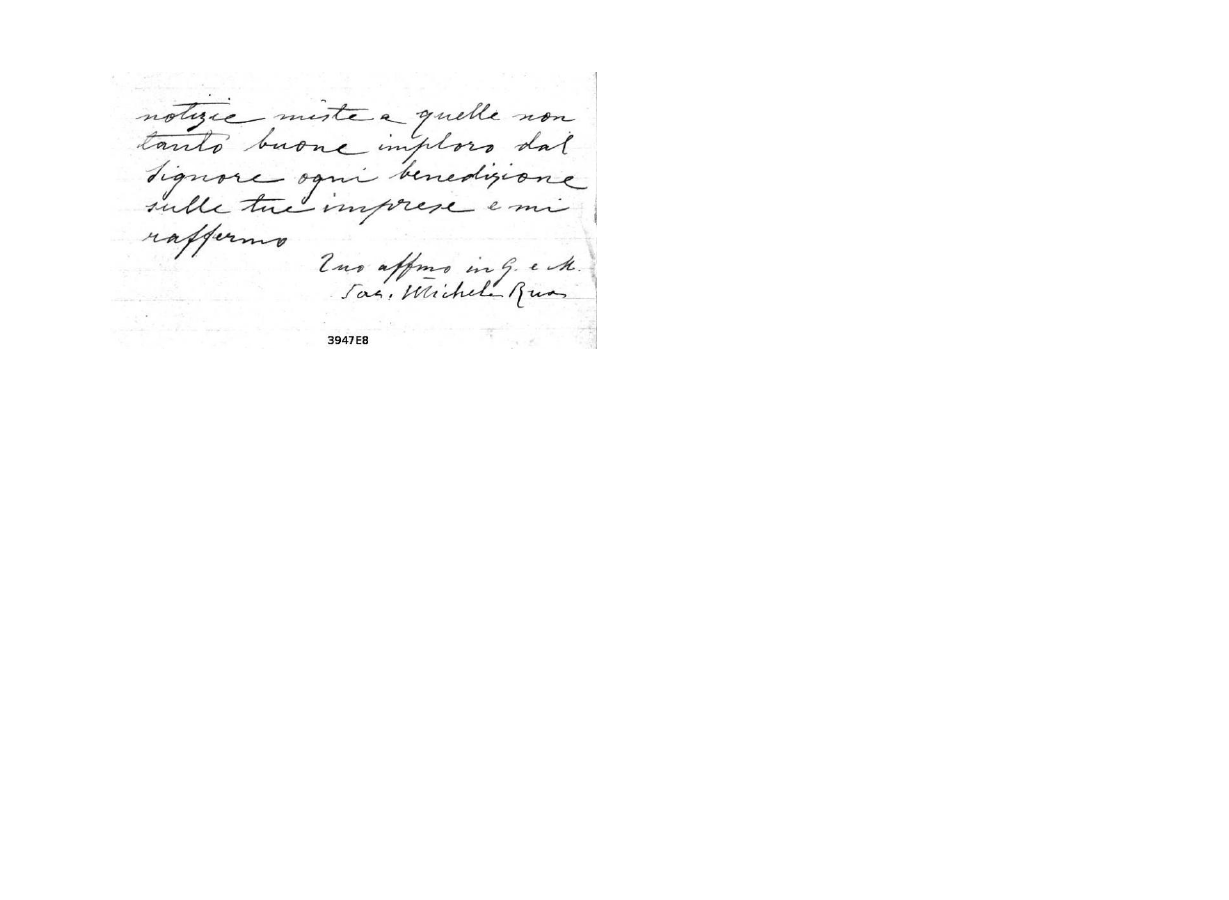 notizie miste a quelle non
tanto buone imploro dal
Signore ogni benedizione
sulle tue imprese e mi
raffermo
Tuo affmo in G. e M.
Sac. Michele Rua
3947E8